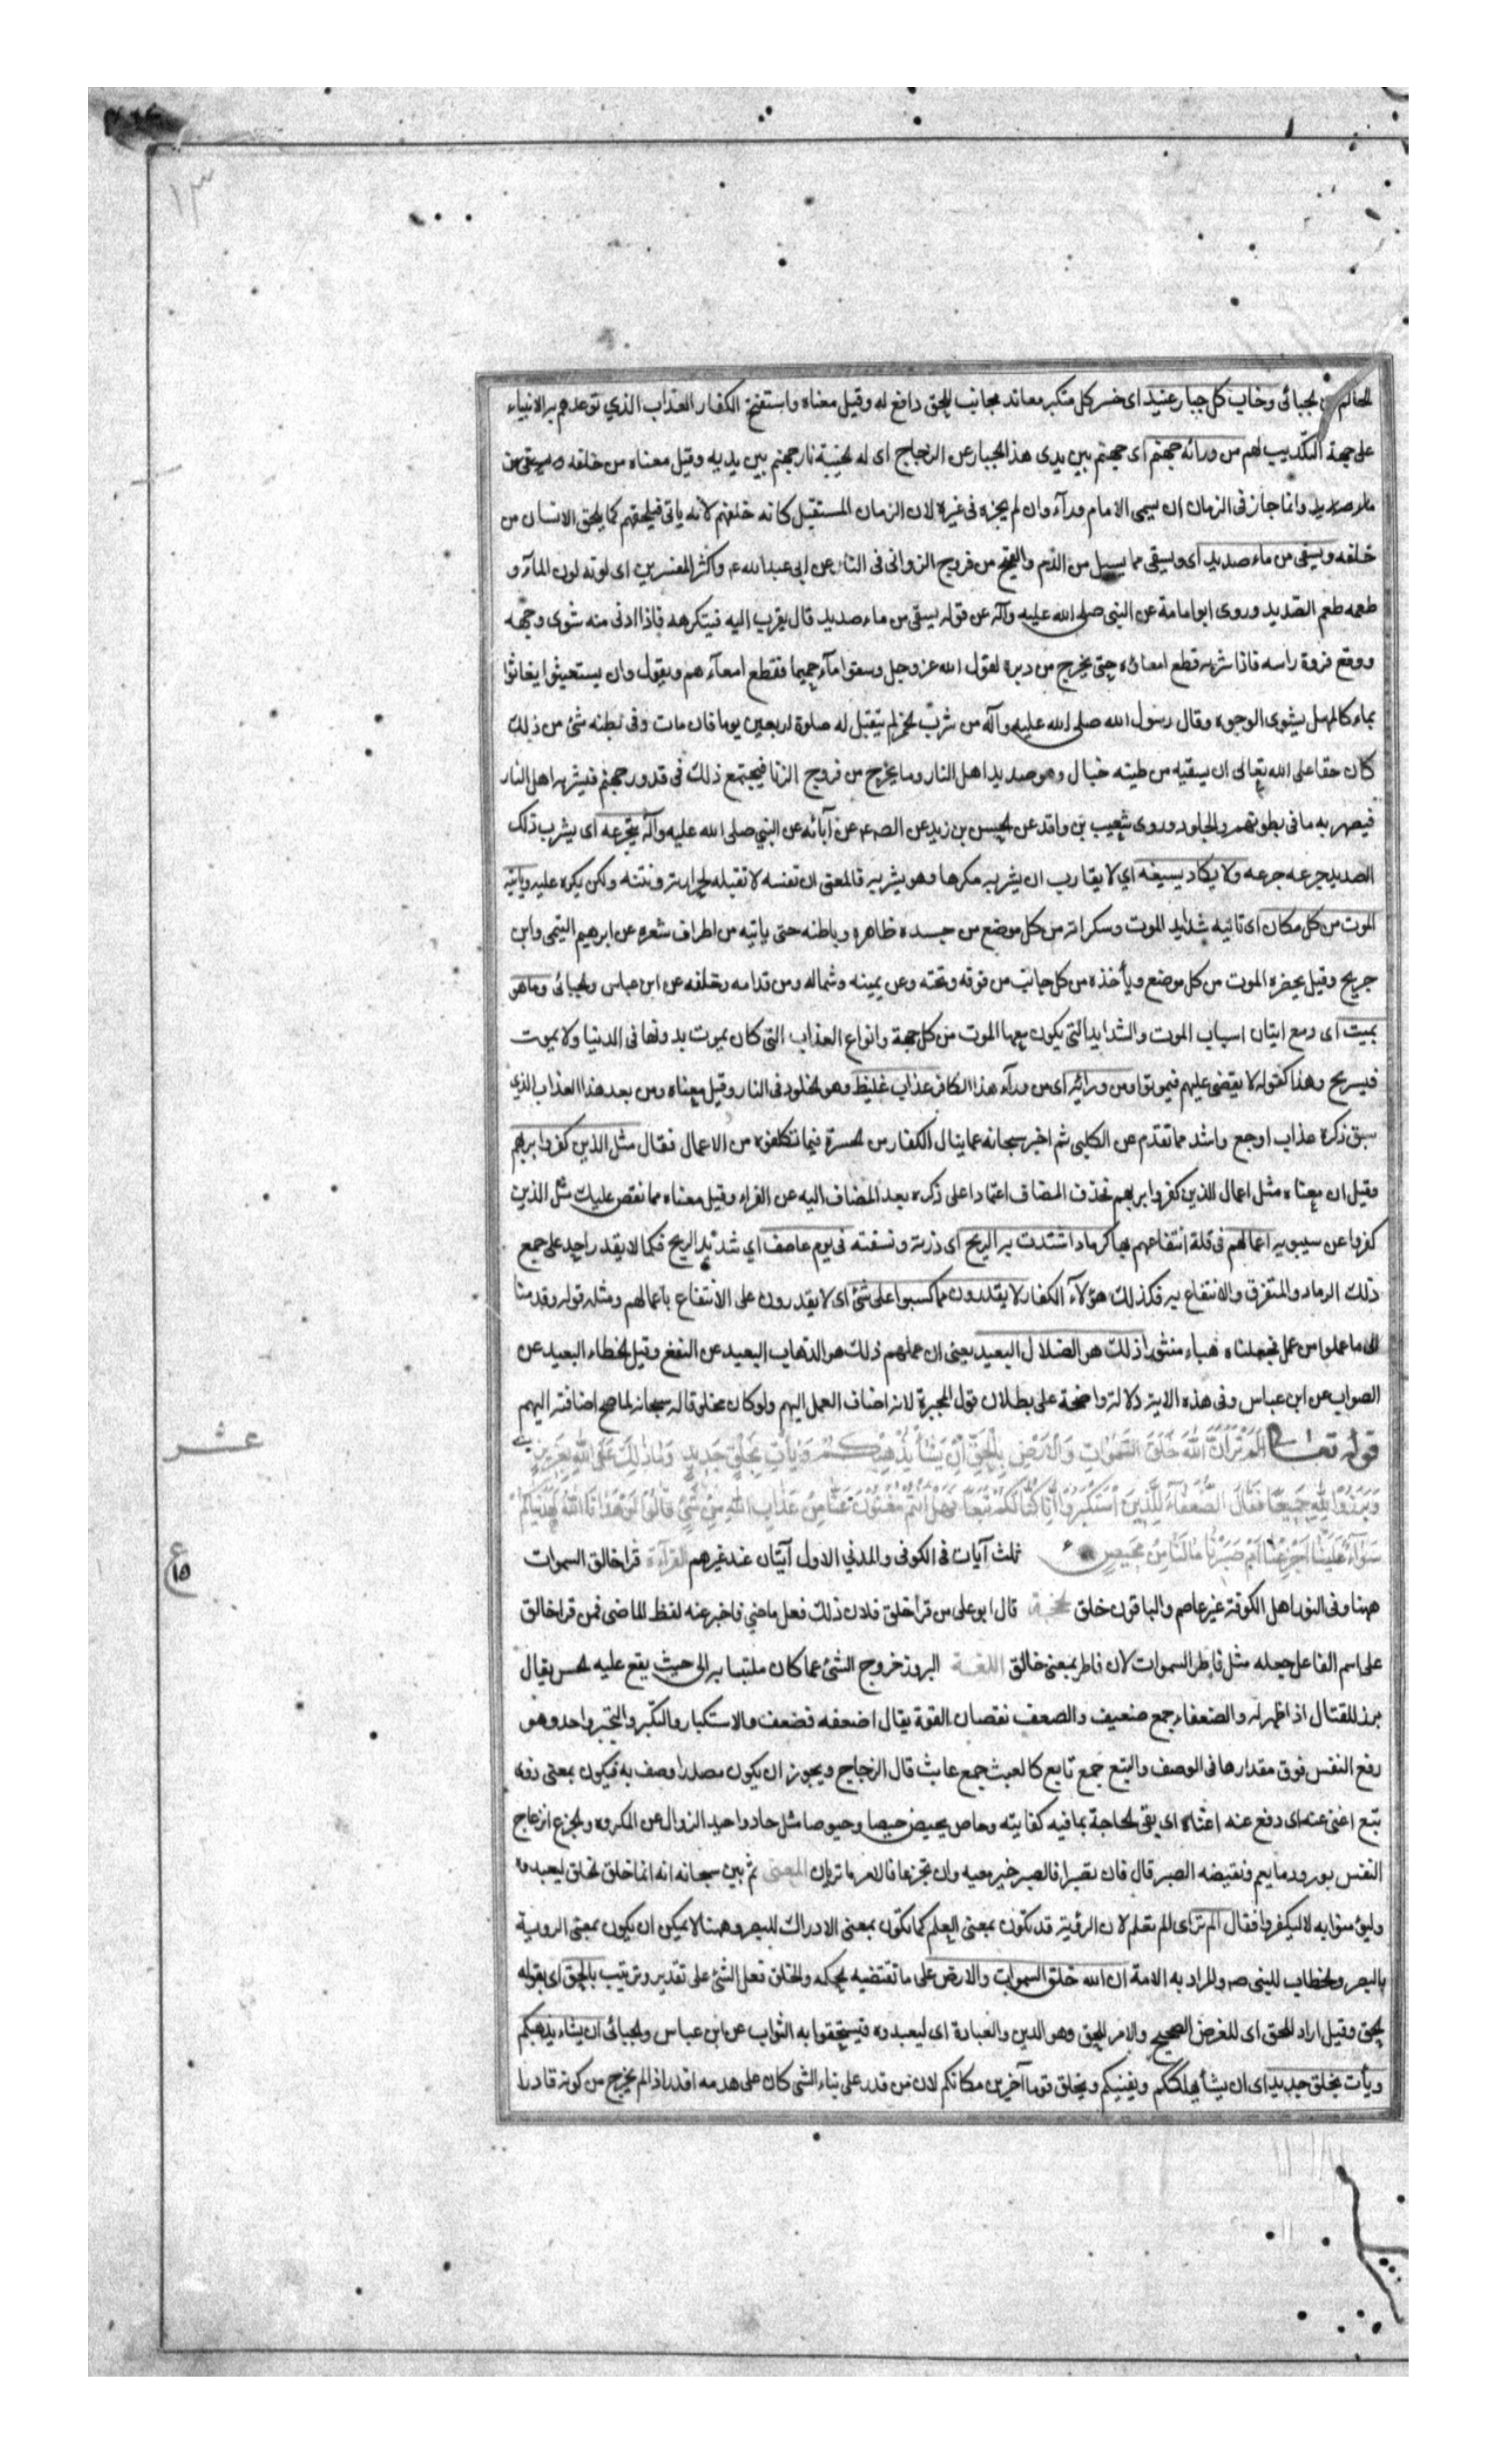 ١٣
الحاكم الجبائى وخاب كل جبار عنيد اى خسر كل متكبر معاند مجانب للحق دافع له وقيل معناه واستفتح الكفار العذاب الذي توعدهم به الانبياء
على جهة التكذيب لهم من ورائه جهنم اى جهنم بين يدى هذا الجبار عن الزجاج اى له لخيبة نار جهنم بين يديه وقيل معناه من خلفه ويسقى من
ماء صديد وانما جاز فى الزمان ان يسمى الامام ورآء وان لم يجزه فى غيره لان الزمان المستقبل كانه خلفهم لانه ياتى فيلحقهم كما يلحق الانسان من
خلفه ويسقى من ماء صديد اى ويسقى مما يسيل من الدّم والقيح من فروج الزوانى فى النار عن ابى عبدالله ع واكثر المفسرين اى لونه لون المآء و
طعمه طعم الصّديد وروى ابو امامة عن النبى صلى الله عليه وآله عن قوله يسقى من ماء صديد قال يقرب اليه فيتكرهه فاذا ادنى منه شوى وجهه
ووقع فروة راسه فاذا شربه قطع امعائه حتى يخرج من دبره لقول الله عز وجل وسقوا مآء حميما فقطع امعآءهم ويقول وان يستغيثوا يغاثوا
بماء كالمهل يشوى الوجوه وقال رسول الله صلى الله عليه وآله من شرب الخمر لم يتقبل له صلوة اربعين يوما فان مات وفى بطنه شئ من ذلك
كان حقا على الله تعالى ان يسقيه من طينه خبال وهو صديد اهل النار وما يخرج من فروج الزنا فيجتمع ذلك فى قدور جهنم فيشربه اهل النار
فيصهر به ما فى بطونهم والجلود وروى شعيب بن واقد عن الحسين بن زيد عن الصـ ع عن آبائه عن النبي صلى الله عليه وآله يتجرعه اى يشرب ذلك
الصديد جرعه جرعه ولا يكاد يسيغه اي لا يقارب ان يشربه مكرها وهو يشربه فالمعنى ان نفسه لا تقبله لحرارته ونتنه ولكن يكره عليه وياتيه
الموت من كل مكان اى تاتيه شدايد الموت وسكراته من كل موضع من جسده ظاهره وباطنه حتى ياتيه من اطراف شعره عن ابرهيم التيمى وابن
جريج وقيل يحضره الموت من كل موضع ويأخذه من كل جانب من فوقه وتحته وعن يمينه وشماله ومن قدامه وخلفه عن ابن عباس والجبائى وما هو
بميت اى ومع ايتان اسباب الموت والشدايد التي يكون معها الموت من كل جهة وانواع العذاب التى كان يموت بدونها فى الدنيا ولا يموت
فيسريح وهذا كقوله لا يقضى عليهم فيموتوا ومن ورائه اى من ورآء هذا الكافر عذاب غليظ وهو الخلود فى النار وقيل معناه ومن بعد هذا العذاب الذي
سبق ذكره عذاب اوجع واشد مما تقدّم عن الكلبى ثم اخبر سبحانه عما ينال الكفار من الحسرة فيما تكلفوه من الاعمال فقال مثل الذين كفروا بربهم
وقيل ان معناه مثل اعمال الذين كفروا بربهم فحذف المضاف اعتمادا على ذكره بعد المضاف اليه عن الفراء وقيل معناه مما نقص عليك مثل الذين
كفروا عن سيبويه اعمالهم فى قلة انتفاعهم بها كرماد اشتدت به الريح اى ذرته ونسفته فى يوم عاصف اي شديد الريح فكما لا يقدر احد على جمع
ذلك الرماد والمتفرق والانتفاع به فكذلك هؤلآء الكفار لا يقدرون مما كسبوا على شئ اى لا يقدرون على الانتفاع باعمالهم ومثله قوله وقدمنا
الى ما عملوا من عمل فجعلناه هباء منثورا ذلك هو الضلال البعيد يعنى ان عملهم ذلك هو الذهاب البعيد عن النفع وقيل الخطاء البعيد عن
الصواب عن ابن عباس وفى هذه الاية دلالة واضحة على بطلان قول المجبرة لانه اضاف العمل اليهم ولو كان مخلوقا له سبحانه لما صح اضافته اليهم
قوله تعالى اَلَمْ تَرَ اَنَّ اللّٰهَ خَلَقَ السَّمٰوَاتِ وَالْاَرْضَ بِالْحَقِّ اِنْ يَشَأْ يُذْهِبْكُمْ وَيَأْتِ بِخَلْقٍ جَدِيدٍ وَمَا ذٰلِكَ عَلَى اللّٰهِ بِعَزِيزٍ
عشر
وَبَرَزُوا لِلّٰهِ جَمِيعًا فَقَالَ الضُّعَفَآءُ لِلَّذِينَ اسْتَكْبَرُوا اِنَّا كُنَّا لَكُمْ تَبَعًا فَهَلْ اَنْتُمْ مُغْنُونَ عَنَّا مِنْ عَذَابِ اللّٰهِ مِنْ شَيْءٍ قَالُوا لَوْ هَدٰينَا اللّٰهُ لَهَدَيْنَاكُمْ
سَوَآءٌ عَلَيْنَا اَجَزِعْنَا اَمْ صَبَرْنَا مَا لَنَا مِنْ مَحِيصٍ ثلث آيات فى الكوفى والمدني الاول آيتان عند غيرهم القرآءة قرا خالق السموات
ع ١٥
ههنا وفى النور اهل الكوفة غير عاصم والباقون خلق الحجة قال ابو على من قرأ خلق فلان ذلك فعل ماضي فاخبر عنه لفظ الماضى فمن قرا خالق
على اسم الفاعل جعله مثل فاطر السموات لان فاطر بمعنى خالق اللغة البروز خروج الشئ عما كان ملتبسا به الى حيث يقع عليه الحس يقال
برز للقتال اذا ظهر له والضعفاء جمع ضعيف والضعف نقصان القوة يقال اضعفه فضعف والاستكبار والتكبّر والتجبّر واحد وهو
رفع النفس فوق مقدارها فى الوصف والتبع جمع تابع كالعبث جمع عابث قال الزجاج ويجوز ان يكون مصدرا وصف به فيكون بمعنى ذوى
تبع اغنى عنه اى دفع عنه اى بقى لحاجة بما فيه كفايته وحاص يحيص حيصا وحيوصا مثل حاد واحيد الزوال عن المكروه والجزع انزعاج
النفس بورود ما يغم ونقيضه الصبر قال فان تصبرا فالصبر خير مغبه وان تجزعا فالامر ما تريان المعنى ثم بين سبحانه انه انما خلق الخلق ليعبدوه
وليؤمنوا به لا ليكفروا فقال الم تر اى الم تعلم لان الرؤية قد تكون بمعنى العلم كما تكون بمعنى الادراك للبصر وههنا لا يمكن ان يكون بمعنى الروية
بالبصر والخطاب للنبى ص والمراد به الامة ان الله خلق السموات والارض على ما تقتضيه الحكمه والخلق فعل الشئ على تقدير وترتيب بالحق اى بقوله
الحق وقيل اراد للحق اى للغرض الصحيح والامر الحق وهو الدين والعبادة اى ليعبدوه فيستحقوا به الثواب عن ابن عباس والجبائى ان يشاء يذهبكم
ويأت بخلق جديد اى ان يشأ يهلككم ويفنيكم ويخلق قوما آخرين مكانكم لان من قدر على بناء الشى كان على هدمه اقدر اذا لم يخرج من كونه قادرا